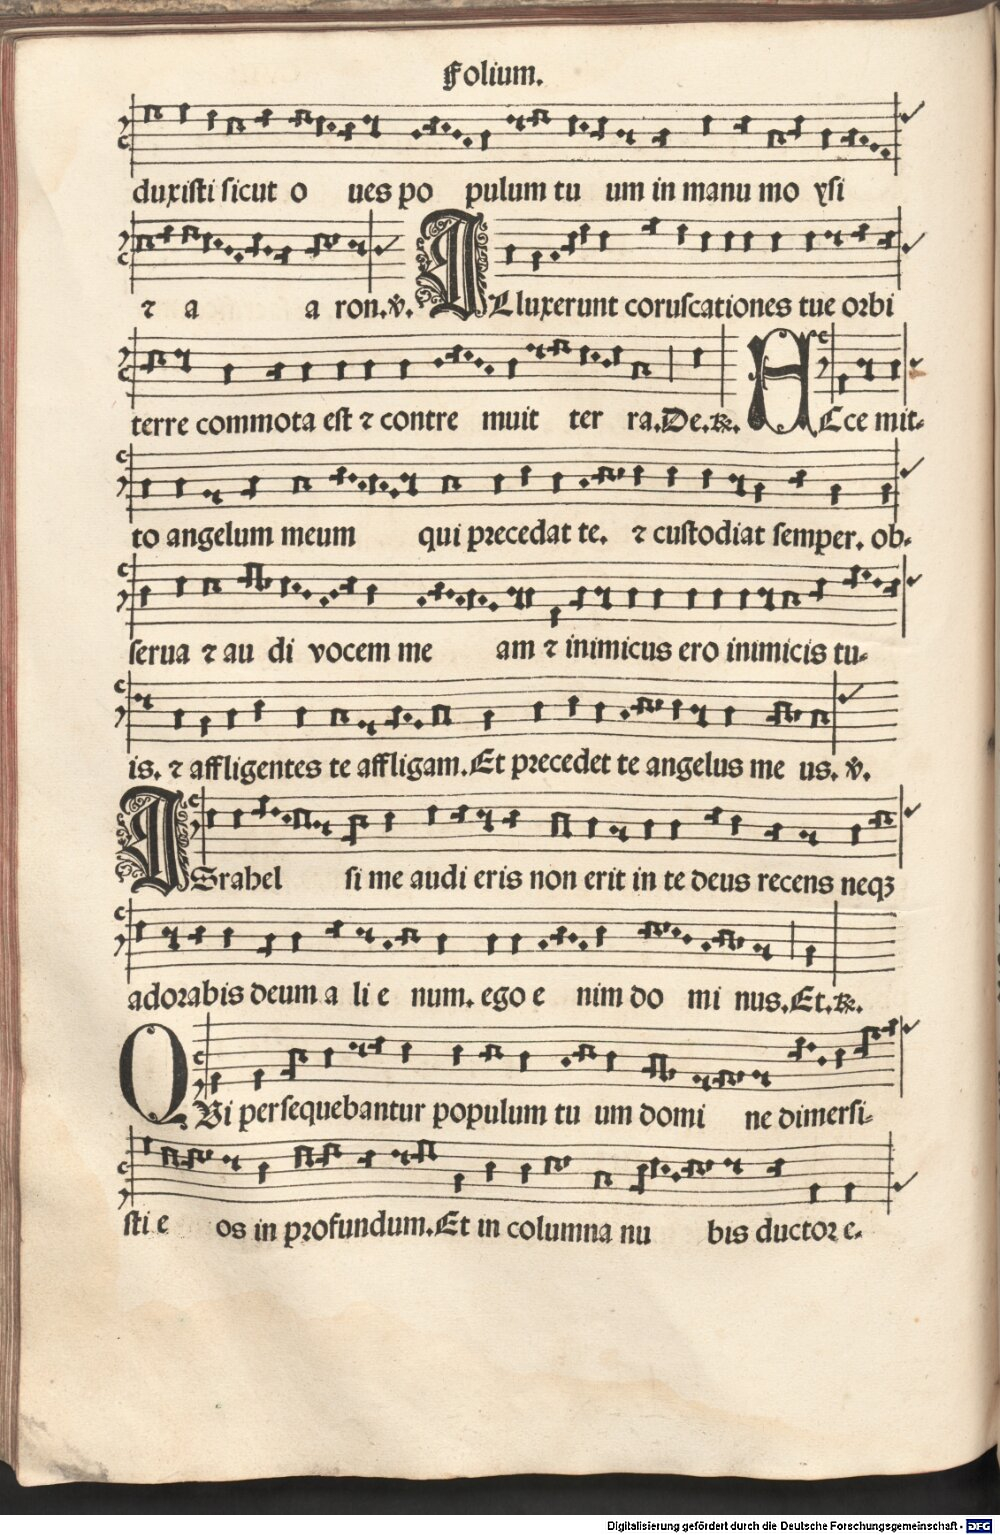 Folium.
duxisti sicut o ues po pulum tu um in manu mo ysi
⁊ a a ron. ℣. ILluxerunt coruscationes tue orbi
terre commota est ⁊ contre muit ter ra. De. ℟. AEcce mit-
to angelum meum qui precedat te. ⁊ custodiat semper. ob-
serua ⁊ au di vocem me am ⁊ inimicus ero inimicis tu-
is. ⁊ affligentes te affligam. Et precedet te angelus me us. ℣.
ISrahel si me audi eris non erit in te deus recens neqꝫ
adorabis deum a li e num. ego e nim do mi nus. Et. ℟.
QVi persequebantur populum tu um domi ne dimersi-
sti e os in profundum. Et in columna nu bis ductor e-
Digitalisierung gefördert durch die Deutsche Forschungsgemeinschaft - DFG